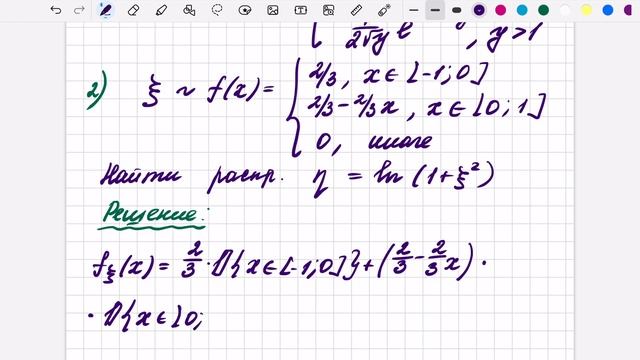 1/(2√y) e , y>1
2) ξ ~ f(x) = { 2/3, x ∈ [-1; 0]
2/3 - 2/3x, x ∈ [0; 1]
0, иначе
Найти распр. η = ln(1+ξ²)
Решение:
f_ξ(x) = 2/3 · 𝟙{x ∈ [-1; 0]} + (2/3 - 2/3 x) ·
· 𝟙{x ∈ [0;